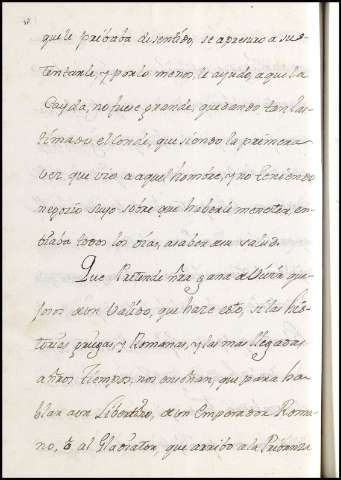 que le pribaba de sentido, se apresuro a sus-
tentarle, y por lo menos, le ayudó, a que la
Cayda, no fuese grande, quedando, tan las-
timado el Conde, que siendo la primera
vez que vio a aquel hombre, y no teniendo
negocio suyo sobre que haberle menester, en-
viaba todos los dias, a saber de su salud.
Que Pretende ñra gana de
josos de un Valido, que haze esto, si las his-
torias griegas, y Romanas, y las mas llegadas
a ñros tiempos, nos enseñan, que para ha-
blar a un Libertino, de un Emperador Roma-
no, ò al Gladiator, que arribo a la Pribanza